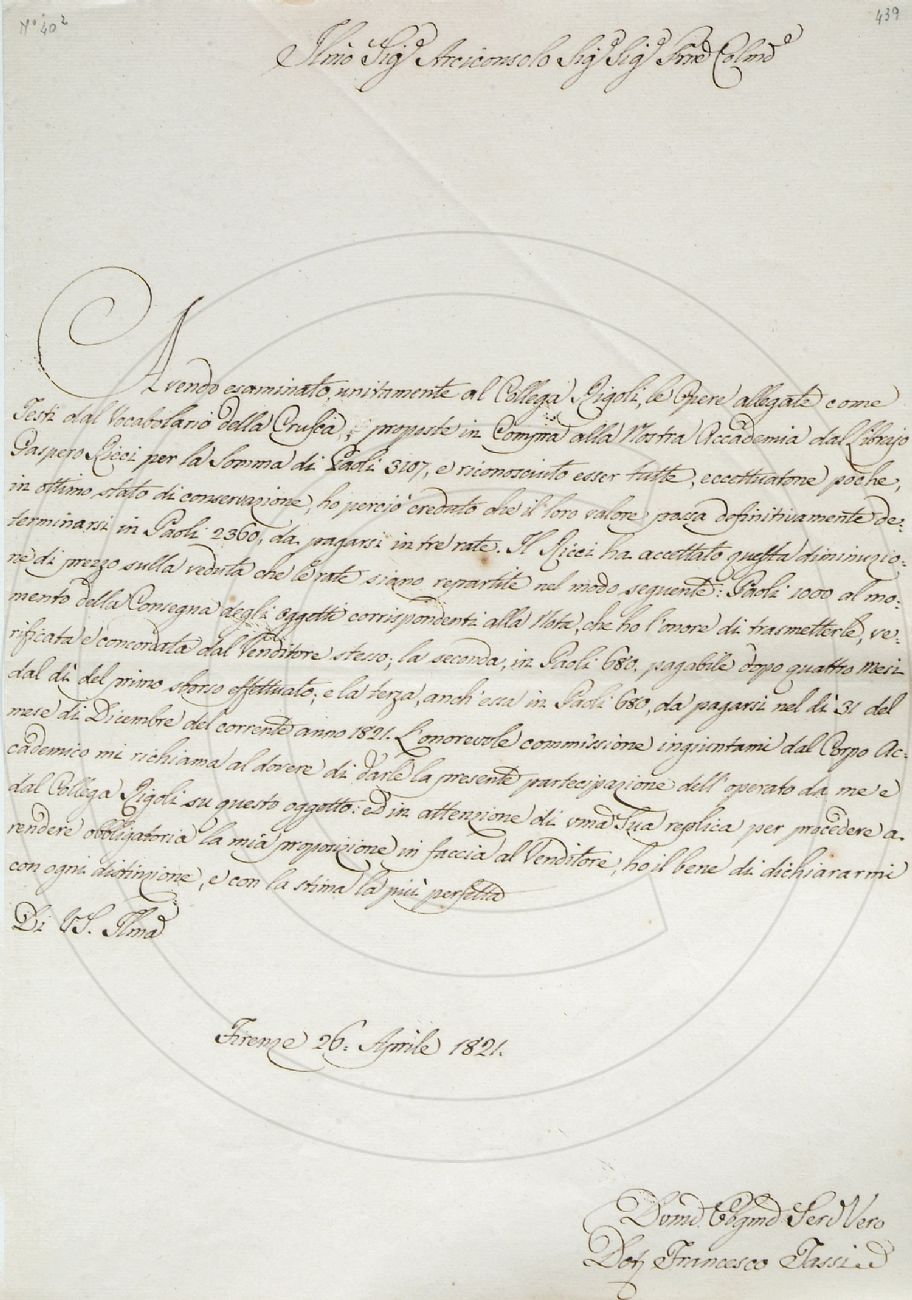 N° 40²
439
Illmo Sig.e Arciconsolo Sig.e Sig.e Prne Colmo
Avendo esaminato, unitamente al Collega Rigoli, le Opere allegate come
Testi dal Vocabolario della Crusca, e proposte in Compra alla Nostra Accademia dal Librajo
Gaspero Ricci per la Somma di Paoli 3107, e riconosciuto esser tutte, eccettuatone poche,
in ottimo stato di conservazione, ho perciò creduto che il loro valore possa definitivamente de-
terminarsi in Paoli 2360, da pagarsi in tre rate. Il Ricci ha accettato questa diminuzio-
ne di prezzo sulla veduta che le rate siano repartite nel modo seguente: Paoli 1000 al mo-
mento della Consegna degli oggetti corrispondenti alla Nota, che ho l'onore di trasmetterle, ve-
rificata e concordata dal Venditore stesso; la seconda, in Paoli 680. pagabile dopo quattro mesi
dal dì del primo sborso effettuato; e la terza, anch'essa in Paoli 680, da pagarsi nel dì 31 del
mese di Dicembre del corrente anno 1821. L'onorevole commissione ingiuntami dal Corpo Ac-
cademico mi richiama al dovere di darle la presente partecipazione dell'operato da me e
dal Collega Rigoli su questo oggetto: ed in attenzione di una Sua replica per procedere a
rendere obbligatoria la mia proposizione in faccia al Venditore, ho il bene di dichiararmi
con ogni distinzione, e con la stima la più perfetta
Di VS. Illma
Firenze 26. Aprile 1821.
Devmo Obgmo Serv Vero
Dott Francesco Tassi